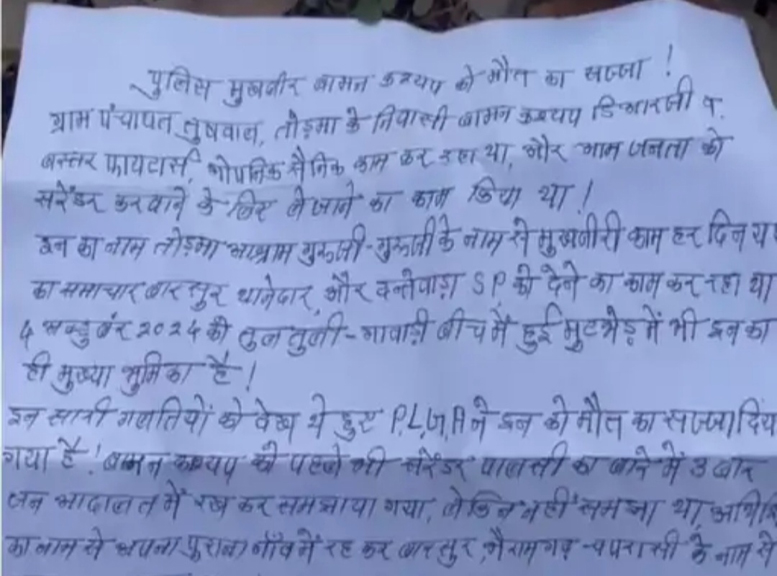 पुलिस मुखबीर बामन कश्यप को मौत का सज्जा !
ग्राम पंचायत तुषवाल, तोड़मा के निवासी बामन कश्यप डिआरजी व.
बस्तर फायटार्स, गोपनिक सैनिक काम कर रहा था, और आम जनता को
सरेंडर करवाने के लिए ले जाने का काम किया था !
इन का नाम तोड़मा आश्राम गुरूजी-गुरूजी के नाम से मुखबीरी काम हर दिन य
का समाचार बारसुर थानेदार, और दन्तेवाड़ा S.P. को देने का काम कर रहा था
4 अक्टुबंर 2024 की तुलतुली-गावाड़ी बीच में हुई मुटभेड़ में भी इन का
ही मुख्या भुमिका है !
इन सारी गलतियों को देख ये हुए P.L.G.A ने इन को मौत का सज्जा दिय
गया है ! बामन कश्यप को पहले भी सरेंडर पालसी का बाने में 3 बार
जन आदालत में रख कर समझाया गया, लेकिन नहीं समझा था,
का नाम से अपना पुराना गाँव में रह कर बारसुर, भैरामगढ़ - चपरासी के नाम से